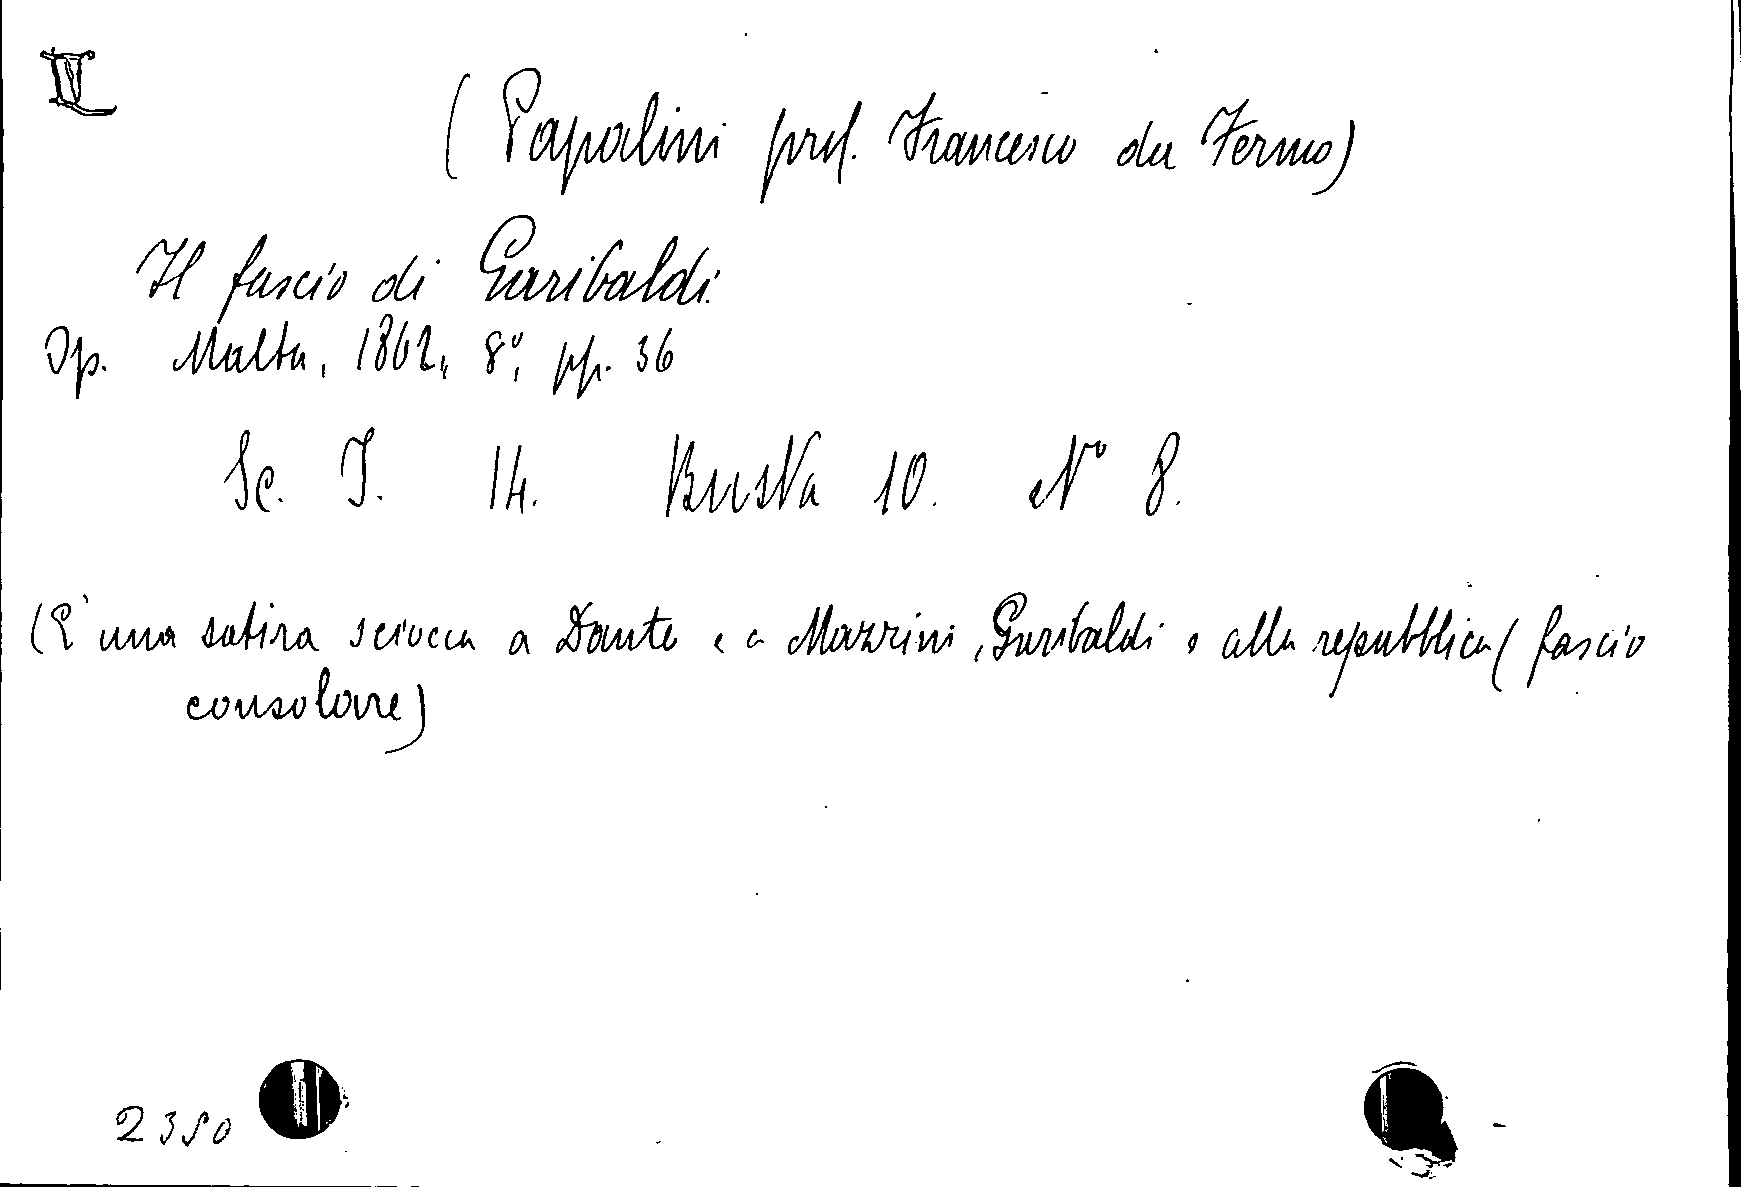 (Papalini prof. Francesco da Fermo)
Il fascio di Garibaldi.
Op. Malta, 1862, 8°, pp. 36
Sc. I. 14. Busta 10. N° 8.
(È una satira sciocca a Dante e a Mazzini, Garibaldi e alla repubblica (fascio
consolare)